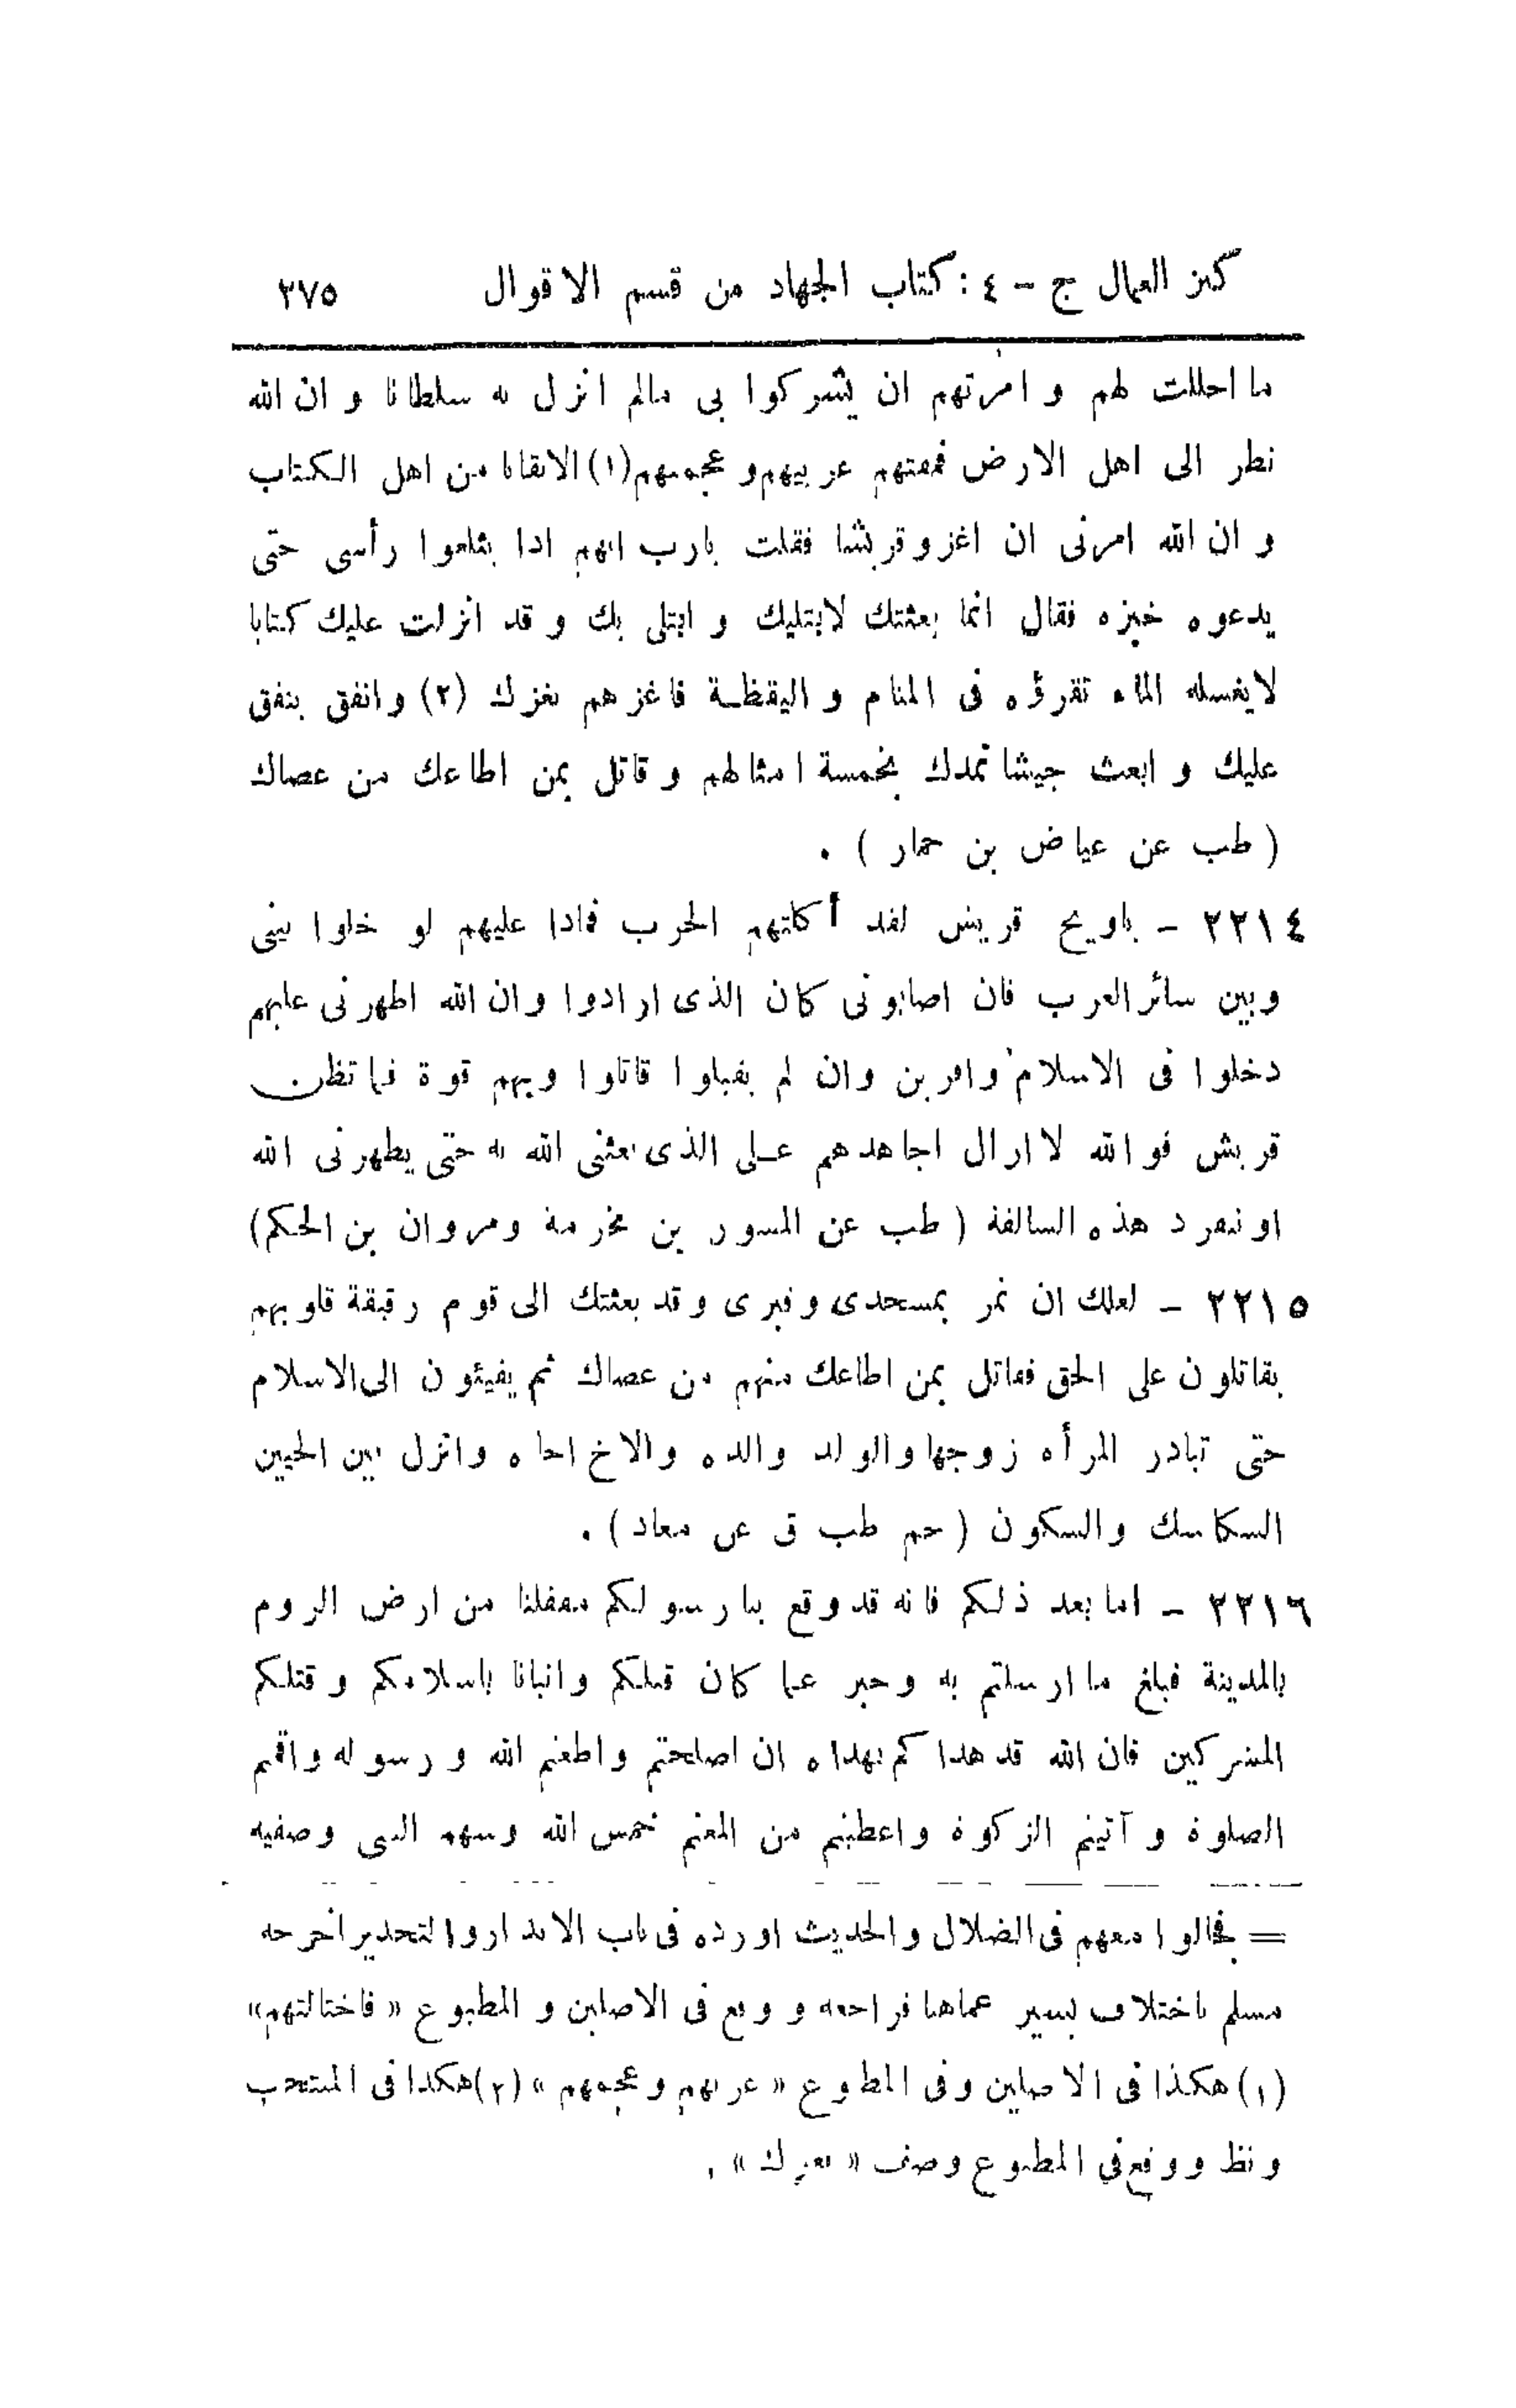 كنز العمال ج - ٤ : كتاب الجهاد من قسم الاقوال ٢٧٥
ما احللت لهم و امرتهم ان يشركوا بى مالم انزل به سلطانا و ان الله
نظر الى اهل الارض فمقتهم عربيهم و عجميهم (١) الا بقايا من اهل الكتاب
و ان الله امرنى ان اغزو قريشا فقلت يارب انهم اذا يثلغوا رأسى حتى
يدعوه خبزه فقال انما بعثتك لابتليك و ابتلى بك و قد انزلت عليك كتابا
لايغسله الماء تقرؤه فى المنام و اليقظة فاغزهم نغزك (٢) وانفق ينفق
عليك و ابعث جيشا نمدك بخمسة امثالهم و قاتل بمن اطاعك من عصاك
( طب عن عياض بن حمار ) .
٢٢١٤ - ياويح قريش لقد أكلتهم الحرب فماذا عليهم لو خلوا بينى
وبين سائر العرب فان اصابونى كان الذى ارادوا وان الله اظهرنى عليهم
دخلوا فى الاسلام وافرين وان لم يقبلوا قاتلوا وبهم قوة فما تظن
قريش فوالله لا ازال اجاهدهم على الذى بعثنى الله به حتى يظهرنى الله
او تنفرد هذه السالفة ( طب عن المسور بن مخرمة ومروان بن الحكم)
٢٢١٥ - لعلك ان تمر بمسجدى وقبرى وقد بعثتك الى قوم رقيقة قلوبهم
يقاتلون على الحق فقاتل بمن اطاعك منهم من عصاك ثم يفيئون الى الاسلام
حتى تبادر المرأه زوجها والولد والده والاخ اخاه وانزل بين الحيين
السكاسك والسكون ( حم طب ق عن معاذ ) .
٢٢١٦ - اما بعد ذلكم فانه قد وقع بنا رسولكم مقفلنا من ارض الروم
بالمدينة فبلغ ما ارسلتم به وخبر عما كان قبلكم وانبانا باسلامكم وقتلكم
المشركين فان الله قد هداكم بهداه ان اصلحتم واطعتم الله ورسوله واقمتم
الصلوة و آتيتم الزكوة واعطيتم من المغنم خمس الله وسهم النبى وصفيه
= فجالوا معهم فى الضلال والحديث اورده فى باب الانذار والتحذير اخرجه
مسلم باختلاف يسير عماها فراجعه و وقع فى الاصلين و المطبوع « فاختالتهم»
(١) هكذا فى الاصلين وفى المطبوع « عربهم وعجمهم » (٢) هكذا فى المنتخب
ونظ ووقع في المطبوع وصف « نعزك » .